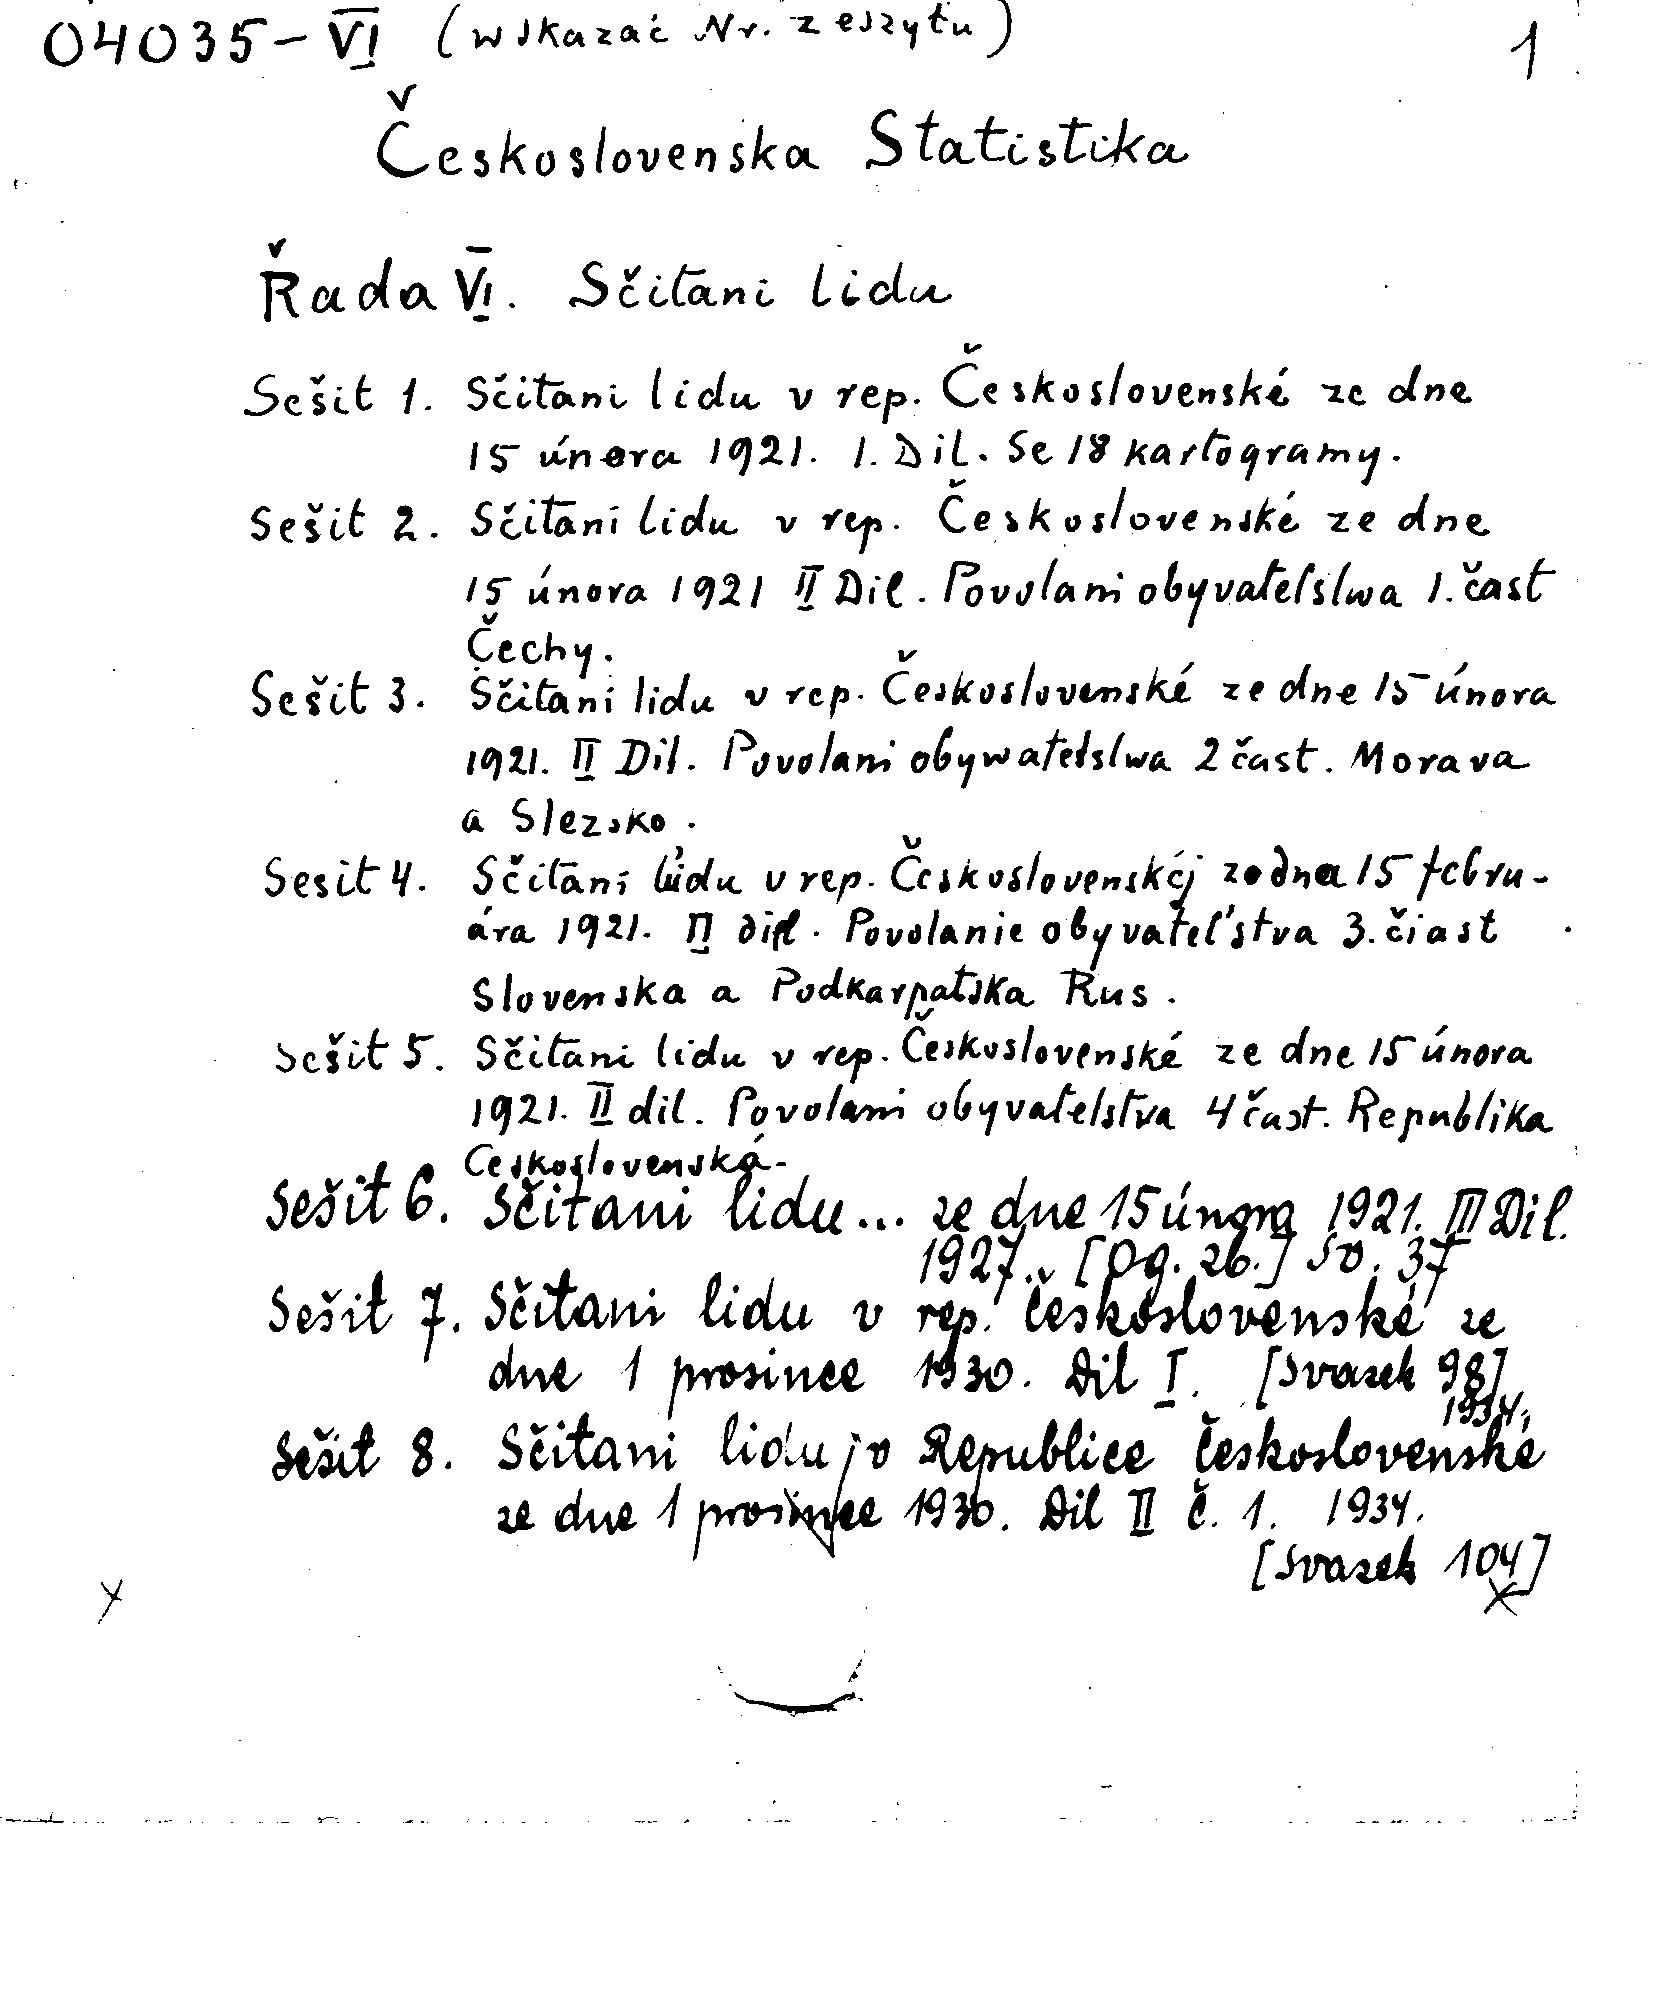 04035-VI (wskazać Nr. zeszytu) 1
Československa Statistika
Řada VI. Sčitani lidu
Sešit 1. Sčitani lidu v rep. Československé ze dne
15 února 1921. 1. Dil. Se 18 kartogramy.
Sešit 2. Sčitani lidu v rep. Československé ze dne
15 února 1921 II Dil. Povolani obyvatelstwa 1. čast
Čechy.
Sešit 3. Sčitani lidu v rep. Československé ze dne 15 února
1921. II Dil. Povolani obywatelstwa 2 čast. Morava
a Slezsko.
Sesit 4. Sčitani ľudu v rep. Československéj zo dna 15 febru-
ára 1921. II diel. Povolanie obyvateľstva 3. čiast
Slovenska a Podkarpatska Rus.
Sešit 5. Sčitani lidu v rep. Československé ze dne 15 února
1921. II dil. Povolani obyvatelstva 4 čast. Republika
Ceskoslovenská.
Sešit 6. Sčitani lidu... ze dne 15 února 1921. III Dil.
1927. [Og. zb.] Sv. 37
Sešit 7. Sčitani lidu v rep. československé ze
dne 1 prosince 1930. Dil I. [Svazek 98]
1934.
Sešit 8. Sčitani lidu v Republice československé
ze dne 1 prosince 1930. Dil II č. 1. 1934.
[Svazek 104]